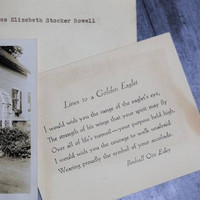 ss Elizabeth Stocker Rowell
Lines to a Golden Eaglet
I would wish you the range of the eagle's eye,
The strength of his wings that your spirit may fly
Over all of life's turmoil—your purpose held high,
I would wish you the courage to walk unafraid
Wearing proudly the symbol of your accolade.